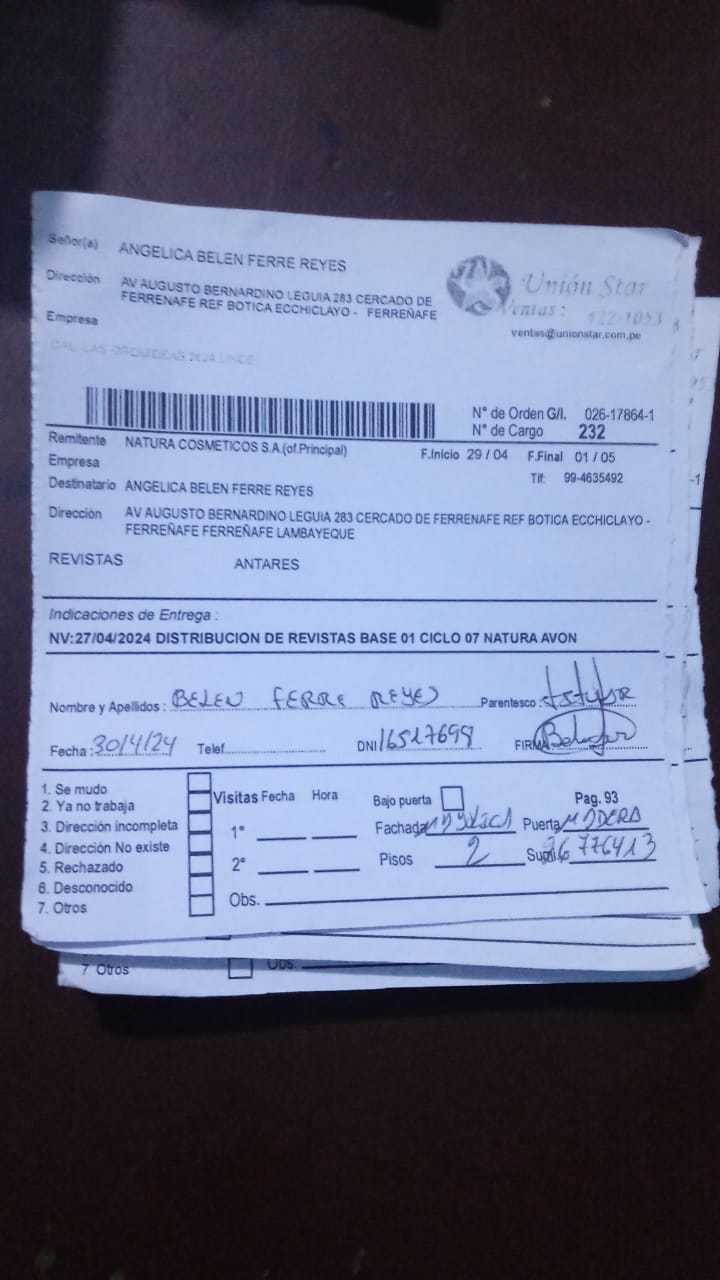 Señor(a) ANGELICA BELEN FERRE REYES
Dirección AV AUGUSTO BERNARDINO LEGUIA 283 CERCADO DE
FERRENAFE REF BOTICA ECCHICLAYO - FERREÑAFE
Empresa
Unión Star
Ventas: 422-1053
ventas@unionstar.com.pe
N° de Orden G/I. 026-17864-1
N° de Cargo 232
Remitente NATURA COSMETICOS S.A.(of.Principal)
F.Inicio 29 / 04 F.Final 01 / 05
Empresa
Tlf: 99-4635492
Destinatario ANGELICA BELEN FERRE REYES
Dirección AV AUGUSTO BERNARDINO LEGUIA 283 CERCADO DE FERRENAFE REF BOTICA ECCHICLAYO -
FERREÑAFE FERREÑAFE LAMBAYEQUE
REVISTAS ANTARES
Indicaciones de Entrega :
NV:27/04/2024 DISTRIBUCION DE REVISTAS BASE 01 CICLO 07 NATURA AVON
Nombre y Apellidos : BELEN FERRE REYES Parentesco :
Fecha : 30/4/24 Telef. DNI 16517698 FIRMA
1. Se mudo
2. Ya no trabaja
3. Dirección incompleta
4. Dirección No existe
5. Rechazado
6. Desconocido
7. Otros
Visitas Fecha Hora
1°
2°
Obs.
Bajo puerta Pag. 93
Fachada Puerta MADERA
Pisos 2 776413
7 Otros Obs.